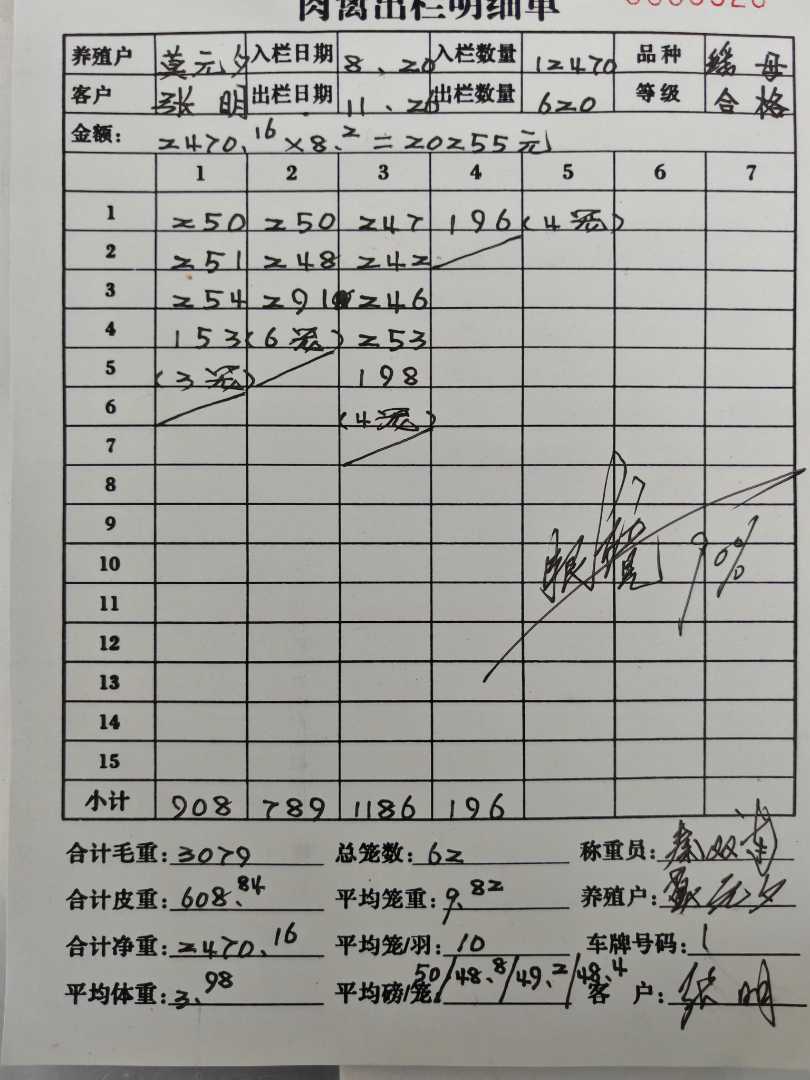 肉禽出栏明细单
养殖户 莫元夕 入栏日期 8、20 入栏数量 12470 品种 瑶母
客户 张明 出栏日期 11、26 出栏数量 620 等级 合格
金额: 2470.16×8.2=20255元
1 2 3 4 5 6 7
1 250 250 247 196 (4笼)
2 251 248 242
3 254 291 246
4 153 (6笼) 253
5 (3笼) 198
6 (4笼)
7
8
9
10
11
12
13
14
15
90%
小计 908 789 1186 196
合计毛重: 3079 总笼数: 62 称重员:
合计皮重: 608.84 平均笼重: 9.82 养殖户:
合计净重: 2470.16 平均笼/羽: 10 车牌号码: 1
平均体重: 3.98 平均磅/笼: 50/48.8/49.2/48.4 客户: 张明